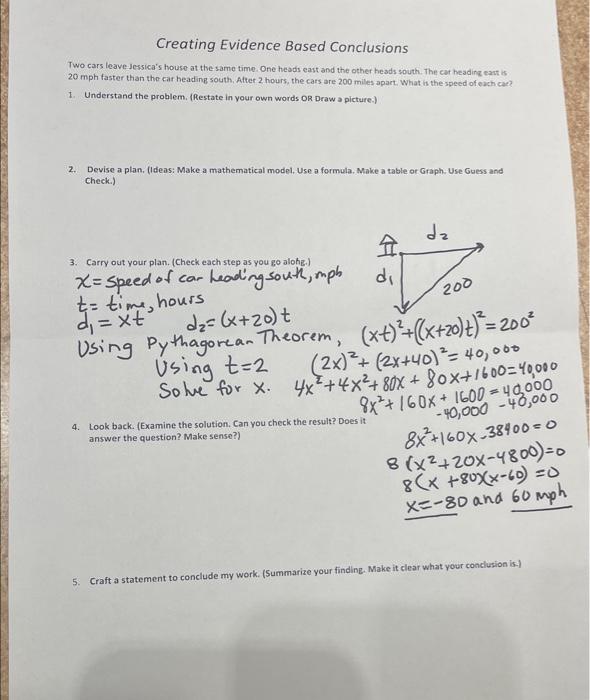 Creating Evidence Based Conclusions
Two cars leave Jessica's house at the same time. One heads east and the other heads south. The car heading east is
20 mph faster than the car heading south. After 2 hours, the cars are 200 miles apart. What is the speed of each car?
1. Understand the problem. (Restate in your own words OR Draw a picture.)
2. Devise a plan. (Ideas: Make a mathematical model. Use a formula. Make a table or Graph. Use Guess and
Check.)
d₂
d₁
200
3. Carry out your plan. (Check each step as you go along.)
x = speed of car heading south, mph
t = time, hours
d₁ = xt d₂ = (x+20)t
Using Pythagorean Theorem, (xt)² + ((x+20)t)² = 200²
Using t=2 (2x)² + (2x+40)² = 40,000
Solve for x. 4x² + 4x² + 80x + 80x + 1600 = 40,000
8x² + 160x + 1600 = 40,000
-40,000 -40,000
4. Look back. (Examine the solution. Can you check the result? Does it
answer the question? Make sense?)
8x² + 160x - 38400 = 0
8(x² + 20x - 4800) = 0
8(x + 80)(x - 60) = 0
x = -80 and 60 mph
5. Craft a statement to conclude my work. (Summarize your finding. Make it clear what your conclusion is.)